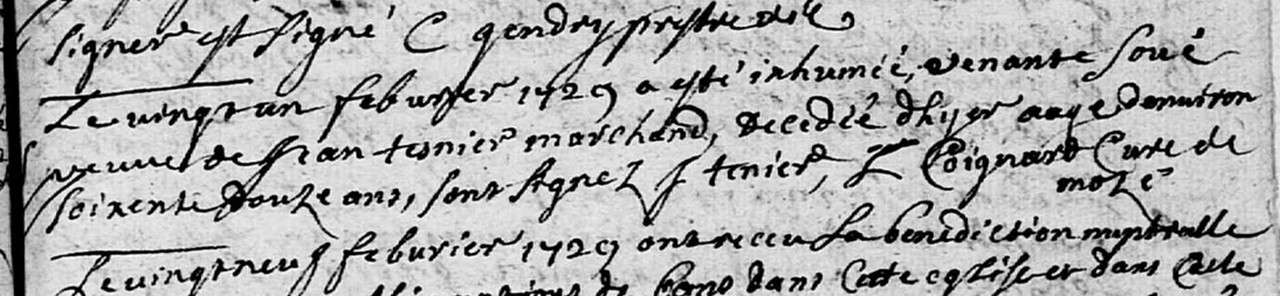 signer est signé C gendry prestre
Le vingt un feburier 1729 a esté inhumée, venante Soué
veuve de Jean tesnier marchand, decedée d'hyer aage denuiron
soixente douze ans, sont signez J tenier, L Coignard Cure de
mozé
Le vingt neuf feburier 1729 ont receu La benediction nuptialle
de bans dans Cette eglise et dans Celle